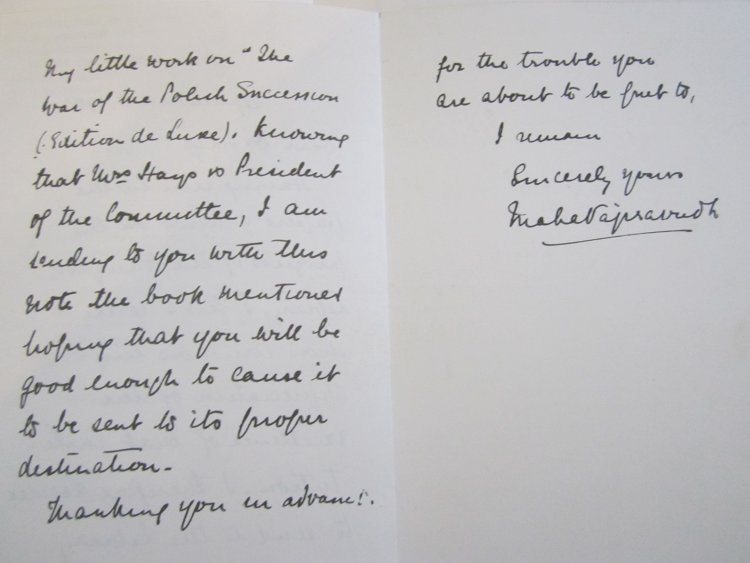 My little work on "The
War of the Polish Succession
(Edition de Luxe). Knowing
that Mrs Hays is President
of the Committee, I am
sending to you with this
note the book mentioned
hoping that you will be
good enough to cause it
to be sent to its proper
destination.
Thanking you in advance
for the trouble you
are about to be put to,
I remain
Sincerely yours
Maha Vajiravudh